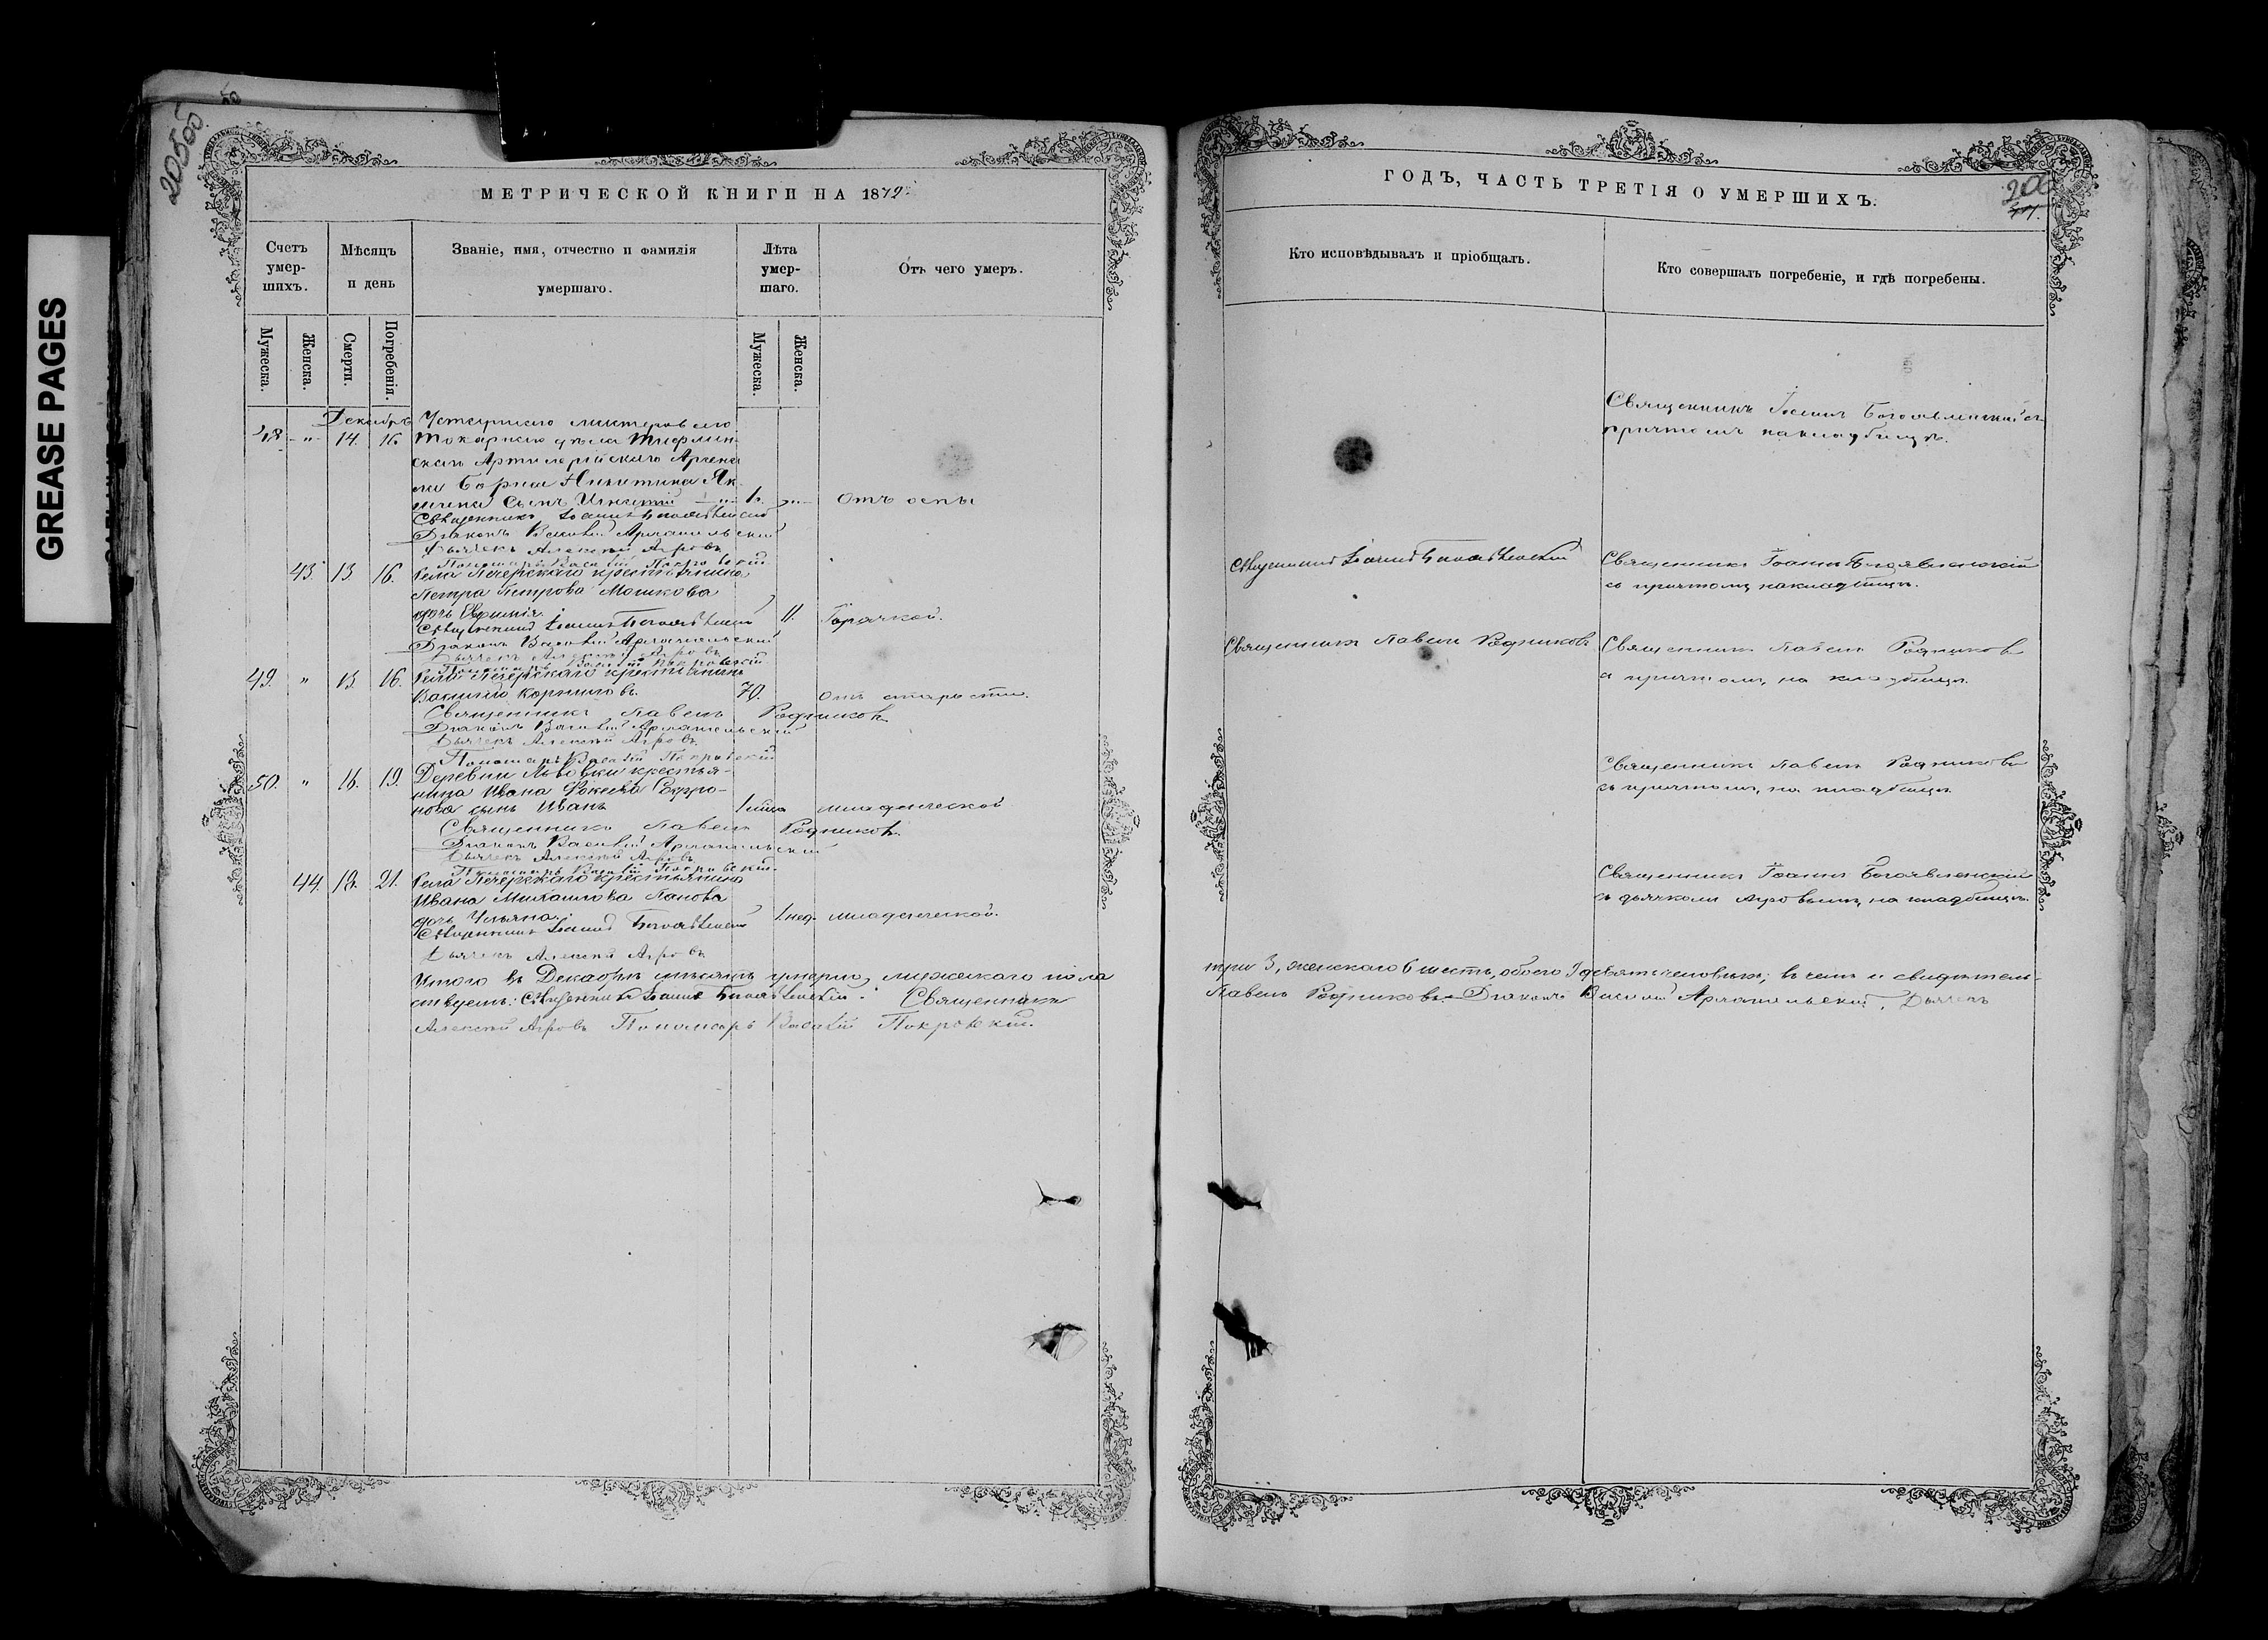 GREASE PAGES
МЕТРИЧЕСКОЙ КНИГИ НА 1872
Счетъ умер-
шихъ.
Мѣсяцъ
и день
Званіе, имя, отчество и фамилія
умершаго.
Лѣта
умер-
шаго.
Отъ чего умеръ.
Мужеска.
Женска.
Смерти.
Погребенія.
Мужеска.
Женска.
Декабрь
48 " 14. 16.
Токарнаго
Артилерійскаго
Бориса Никитина Як-
сынъ Игнатій 1. " Отъ оспы
Діаконъ Василій Архангельскій
Дьячекъ Алексѣй Агровъ
Пономарь Василій Покровскій
43. 13. 16. Села Печерскаго крестьянина
Петра Петрова Мошкова
дочь Евфимія. 11. Горячкой.
Діаконъ Василій Архангельскій
Дьячекъ Алексѣй Агровъ
Пономарь Василій Покровскій
49. " 13. 16. Села Печерскаго крестьянинъ
Корниловъ. 70. отъ старости.
Священникъ Павелъ Родниковъ
Діаконъ Василій Архангельскій
Дьячекъ Алексѣй Агровъ
Пономарь Василій Покровскій
50. " 16. 19. Деревни Львовки крестья-
нина Ивана Софро-
нова сынъ Иванъ младенческой
Священникъ Павелъ Родниковъ.
Діаконъ Василій Архангельскій
Дьячекъ Алексѣй Агровъ
Пономарь Василій Покровскій.
44. 19. 21. Села Печерскаго крестьянина
Ивана Михайлова Панова
дочь Ульяна. 1 нед. младенческой.
Священникъ Іоаннъ Богоявленскій
Дьячекъ Алексѣй Агровъ
Итого въ Декабрѣ мѣсяцѣ умерло, мужескаго пола
ствуемъ: Священникъ Іоаннъ Богоявленскій. Священникъ
Алексѣй Агровъ Пономарь Василій Покровскій.
ГОДЪ, ЧАСТЬ ТРЕТІЯ О УМЕРШИХЪ.
Кто исповѣдывалъ и пріобщалъ.
Кто совершалъ погребеніе, и гдѣ погребены.
Священникъ Іоаннъ Богоявленскій съ
причтомъ на кладбищѣ.
Священникъ Іоаннъ Богоявленскій
Священникъ Іоаннъ Богоявленскій
съ причтомъ на кладбищѣ.
Священникъ Павелъ Родниковъ
Священникъ Павелъ Родниковъ
съ причтомъ, на кладбищѣ.
Священникъ Павелъ Родниковъ
съ причтомъ, на кладбищѣ.
Священникъ Іоаннъ Богоявленскій
съ дьячкомъ Агровымъ, на кладбищѣ.
три 3, женскаго 6 шесть, обоего 9 девять человѣкъ; въ чемъ и свидѣтель-
Павелъ Родниковъ Діаконъ Василій Архангельскій. Дьячекъ